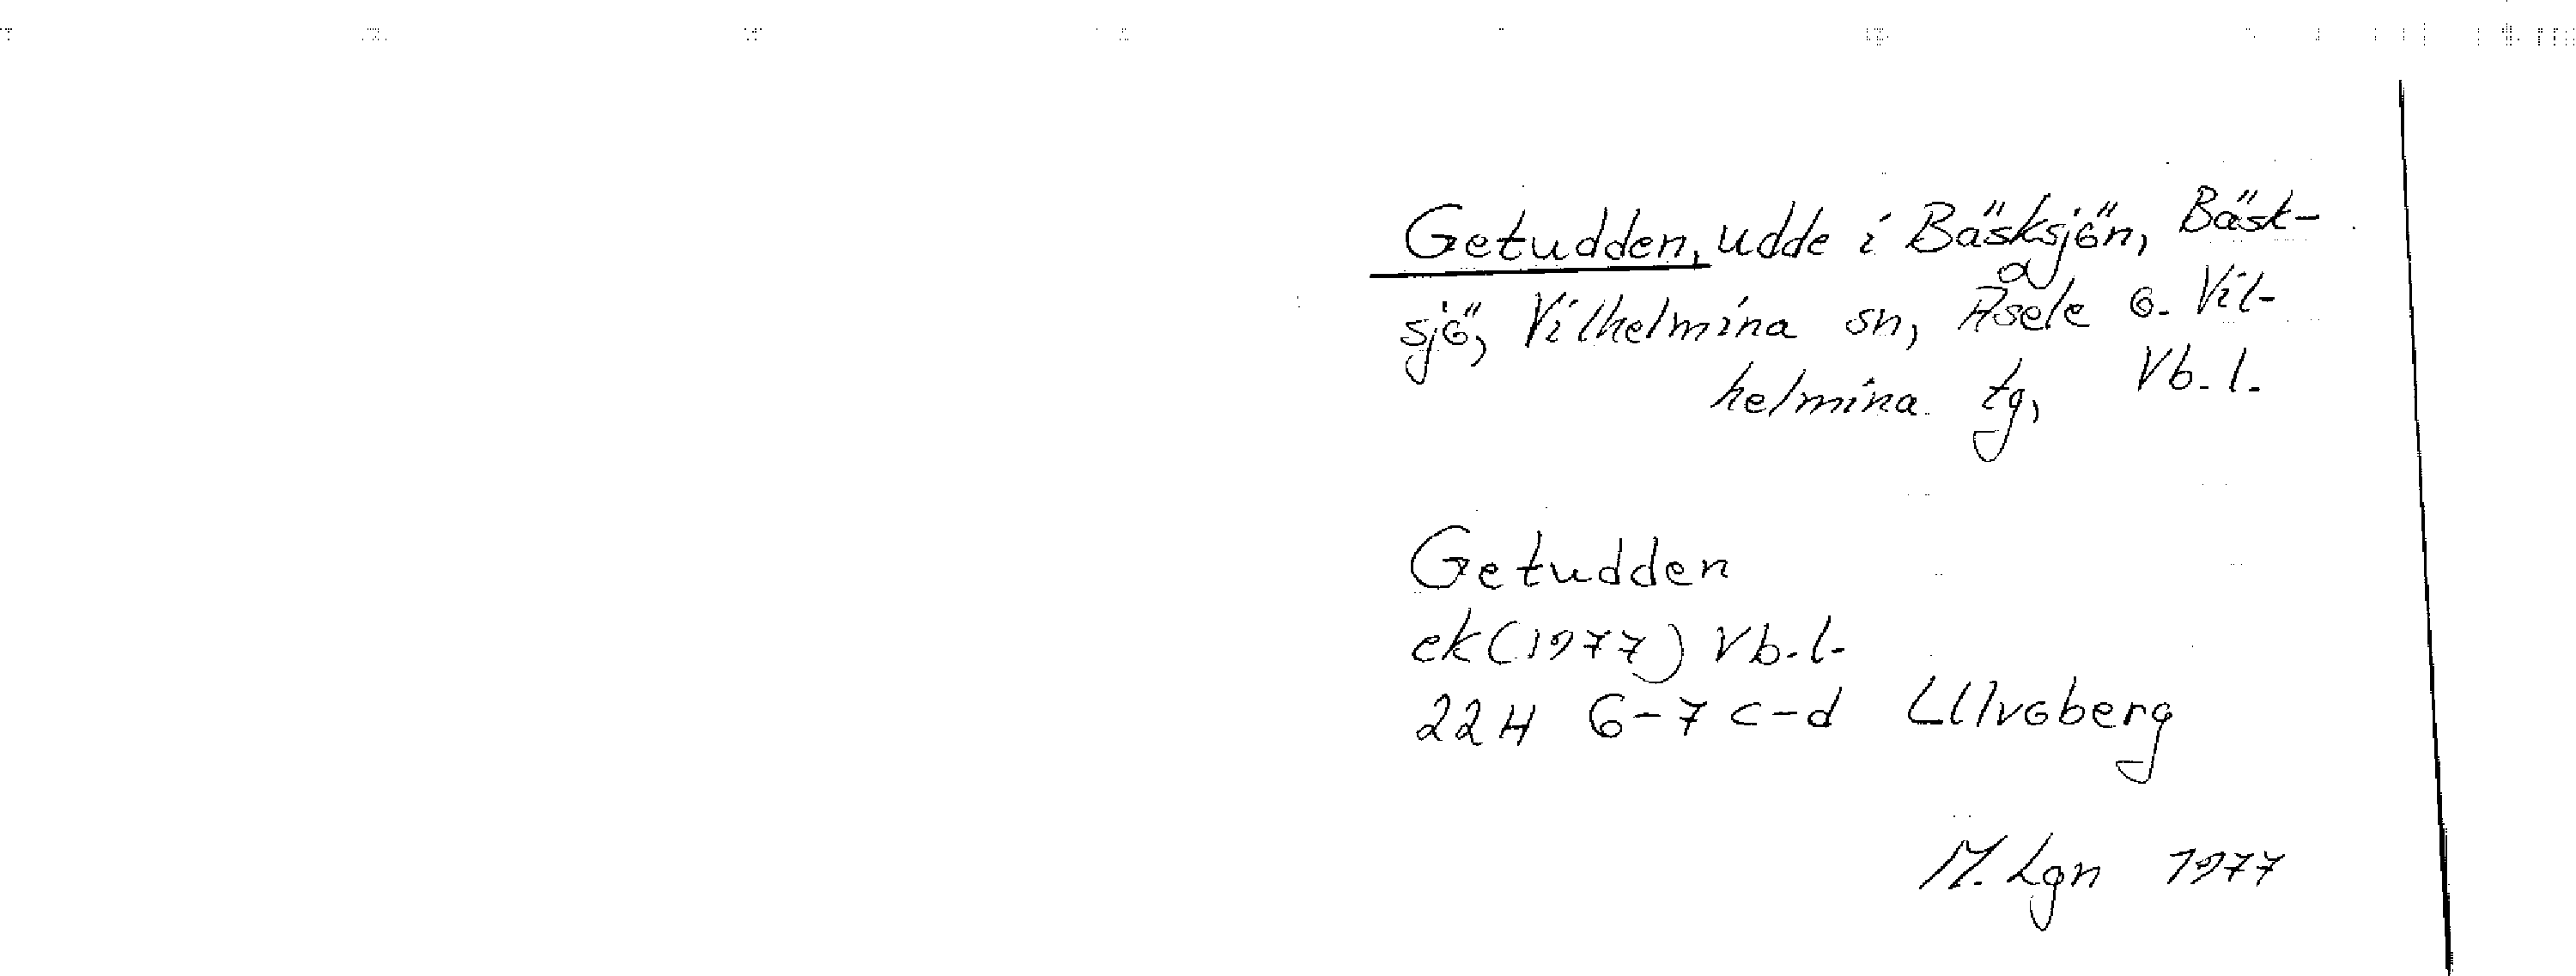 Getudden, udde i Bäsksjön, Bäsk-
sjö, Vilhelmina sn, Åsele o. Vil-
helmina tg, Vb. l.
Getudden
ek (1977) Vb. l.
22H 6-7 c-d Ulvoberg
M. Lgn 1977